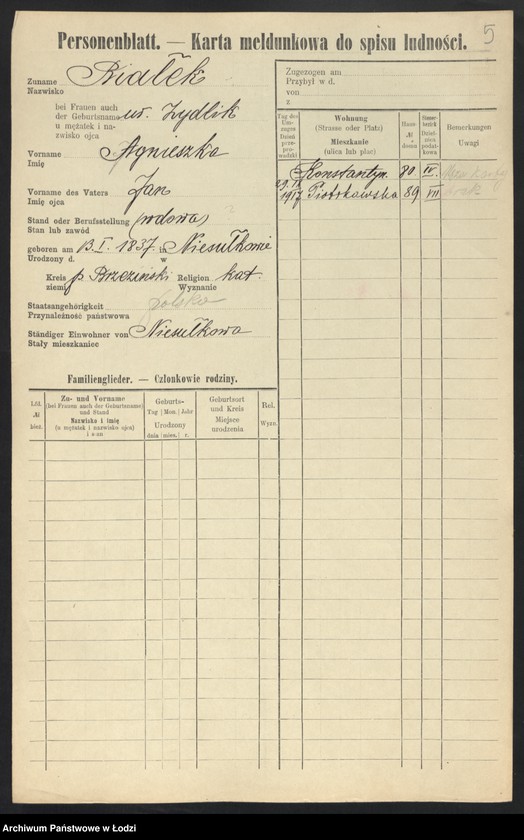 5
Personenblatt. — Karta meldunkowa do spisu ludności.
Zuname Białek
Nazwisko
bei Frauen auch
der Geburtsname ur. Zydlik
u mężatek i na-
zwisko ojca
Vorname Agnieszka
Imię
Vorname des Vaters Jan
Imię ojca
Stand oder Berufsstellung wdowa ?
Stan lub zawód
geboren am 13.I. 1837. in Niesułkowie
Urodzony d. w
Kreis p. Brzeziński Religion kat.
ziemi Wyznanie
Staatsangehörigkeit polska
Przynależność państwowa
Ständiger Einwohner von Niesułkowa
Stały mieszkaniec
Zugezogen am
Przybył w d.
von
z
Tag des Um-zuges Dzień prze-prowadzki
Wohnung
(Strasse oder Platz)
Mieszkanie
(ulica lub plac)
Haus- № domu
Bemerkungen
Uwagi
Konstantyn. 80 IV.
29.IX 1917 Piotrkowska 89 VII
Familienglieder. — Członkowie rodziny.
Lfd. № bież.
Zu- und Vorname
(bei Frauen auch der Geburtsname)
und Stand
Nazwisko i imię
(u mężatek i nazwisko ojca)
i stan
Geburts-
Tag Mon. Jahr
Urodzony
dnia mies. r.
Geburtsort
und Kreis
Miejsce
urodzenia
Rel.
Wyzn.
Archiwum Państwowe w Łodzi